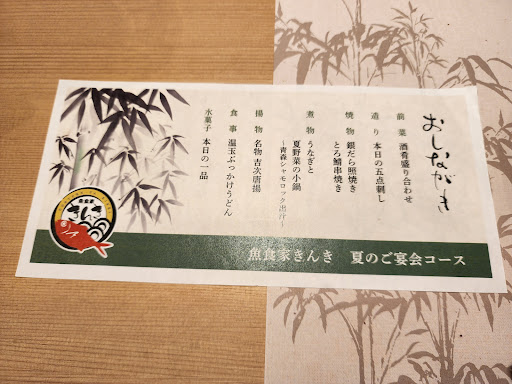 おしながき
前菜 酒肴盛り合わせ
造り 本日の五点刺し
焼物 銀だら照焼き
とろ鯖串焼き
煮物 うなぎと
夏野菜の小鍋
~青森シャモロック出汁~
揚物 名物 吉次唐揚
食事 温玉ぶっかけうどん
水菓子 本日の一品
魚食家きんき 夏のご宴会コース
魚食家
きんき